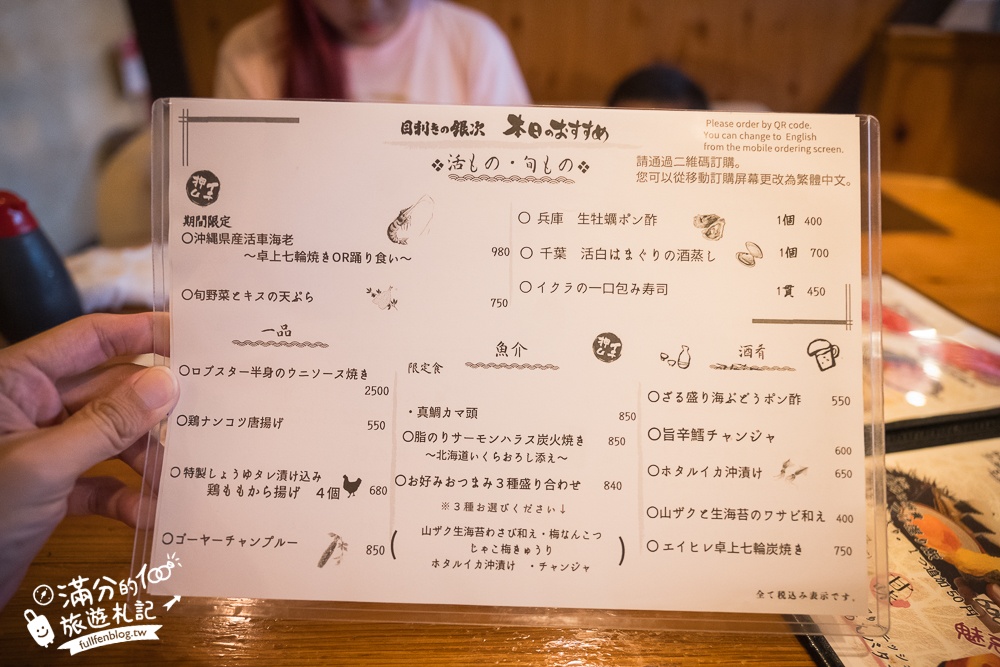 目利きの銀次 本日のおすすめ
Please order by QR code.
You can change to English
from the mobile ordering screen.
請通過二維碼訂購。
您可以從移動訂購屏幕更改為繁體中文。
❖活もの・旬もの❖
期間限定
〇沖縄県産活車海老
〜卓上七輪焼きOR踊り食い〜 980
〇旬野菜とキスの天ぷら 750
〇 兵庫 生牡蠣ポン酢 1個 400
〇 千葉 活白はまぐりの酒蒸し 1個 700
〇イクラの一口包み寿司 1貫 450
一品
〇ロブスター半身のウニソース焼き
2500
〇鶏ナンコツ唐揚げ 550
〇特製しょうゆタレ漬け込み
鶏ももから揚げ 4個 680
〇ゴーヤーチャンプルー 850
魚介
限定食
・真鯛カマ頭 850
〇脂のりサーモンハラス炭火焼き 850
〜北海道いくらおろし添え〜
〇お好みおつまみ3種盛り合わせ 840
※3種お選びください↓
山ザク生海苔わさび和え・梅なんこつ
じゃこ梅きゅうり
ホタルイカ沖漬け ・チャンジャ
酒肴
〇ざる盛り海ぶどうポン酢 550
〇旨辛鱈チャンジャ
600
〇ホタルイカ沖漬け 650
〇山ザクと生海苔のワサビ和え 400
〇エイヒレ卓上七輪炭焼き 750
全て税込み表示です。
滿分的
旅遊札記
fullfenblog.tw